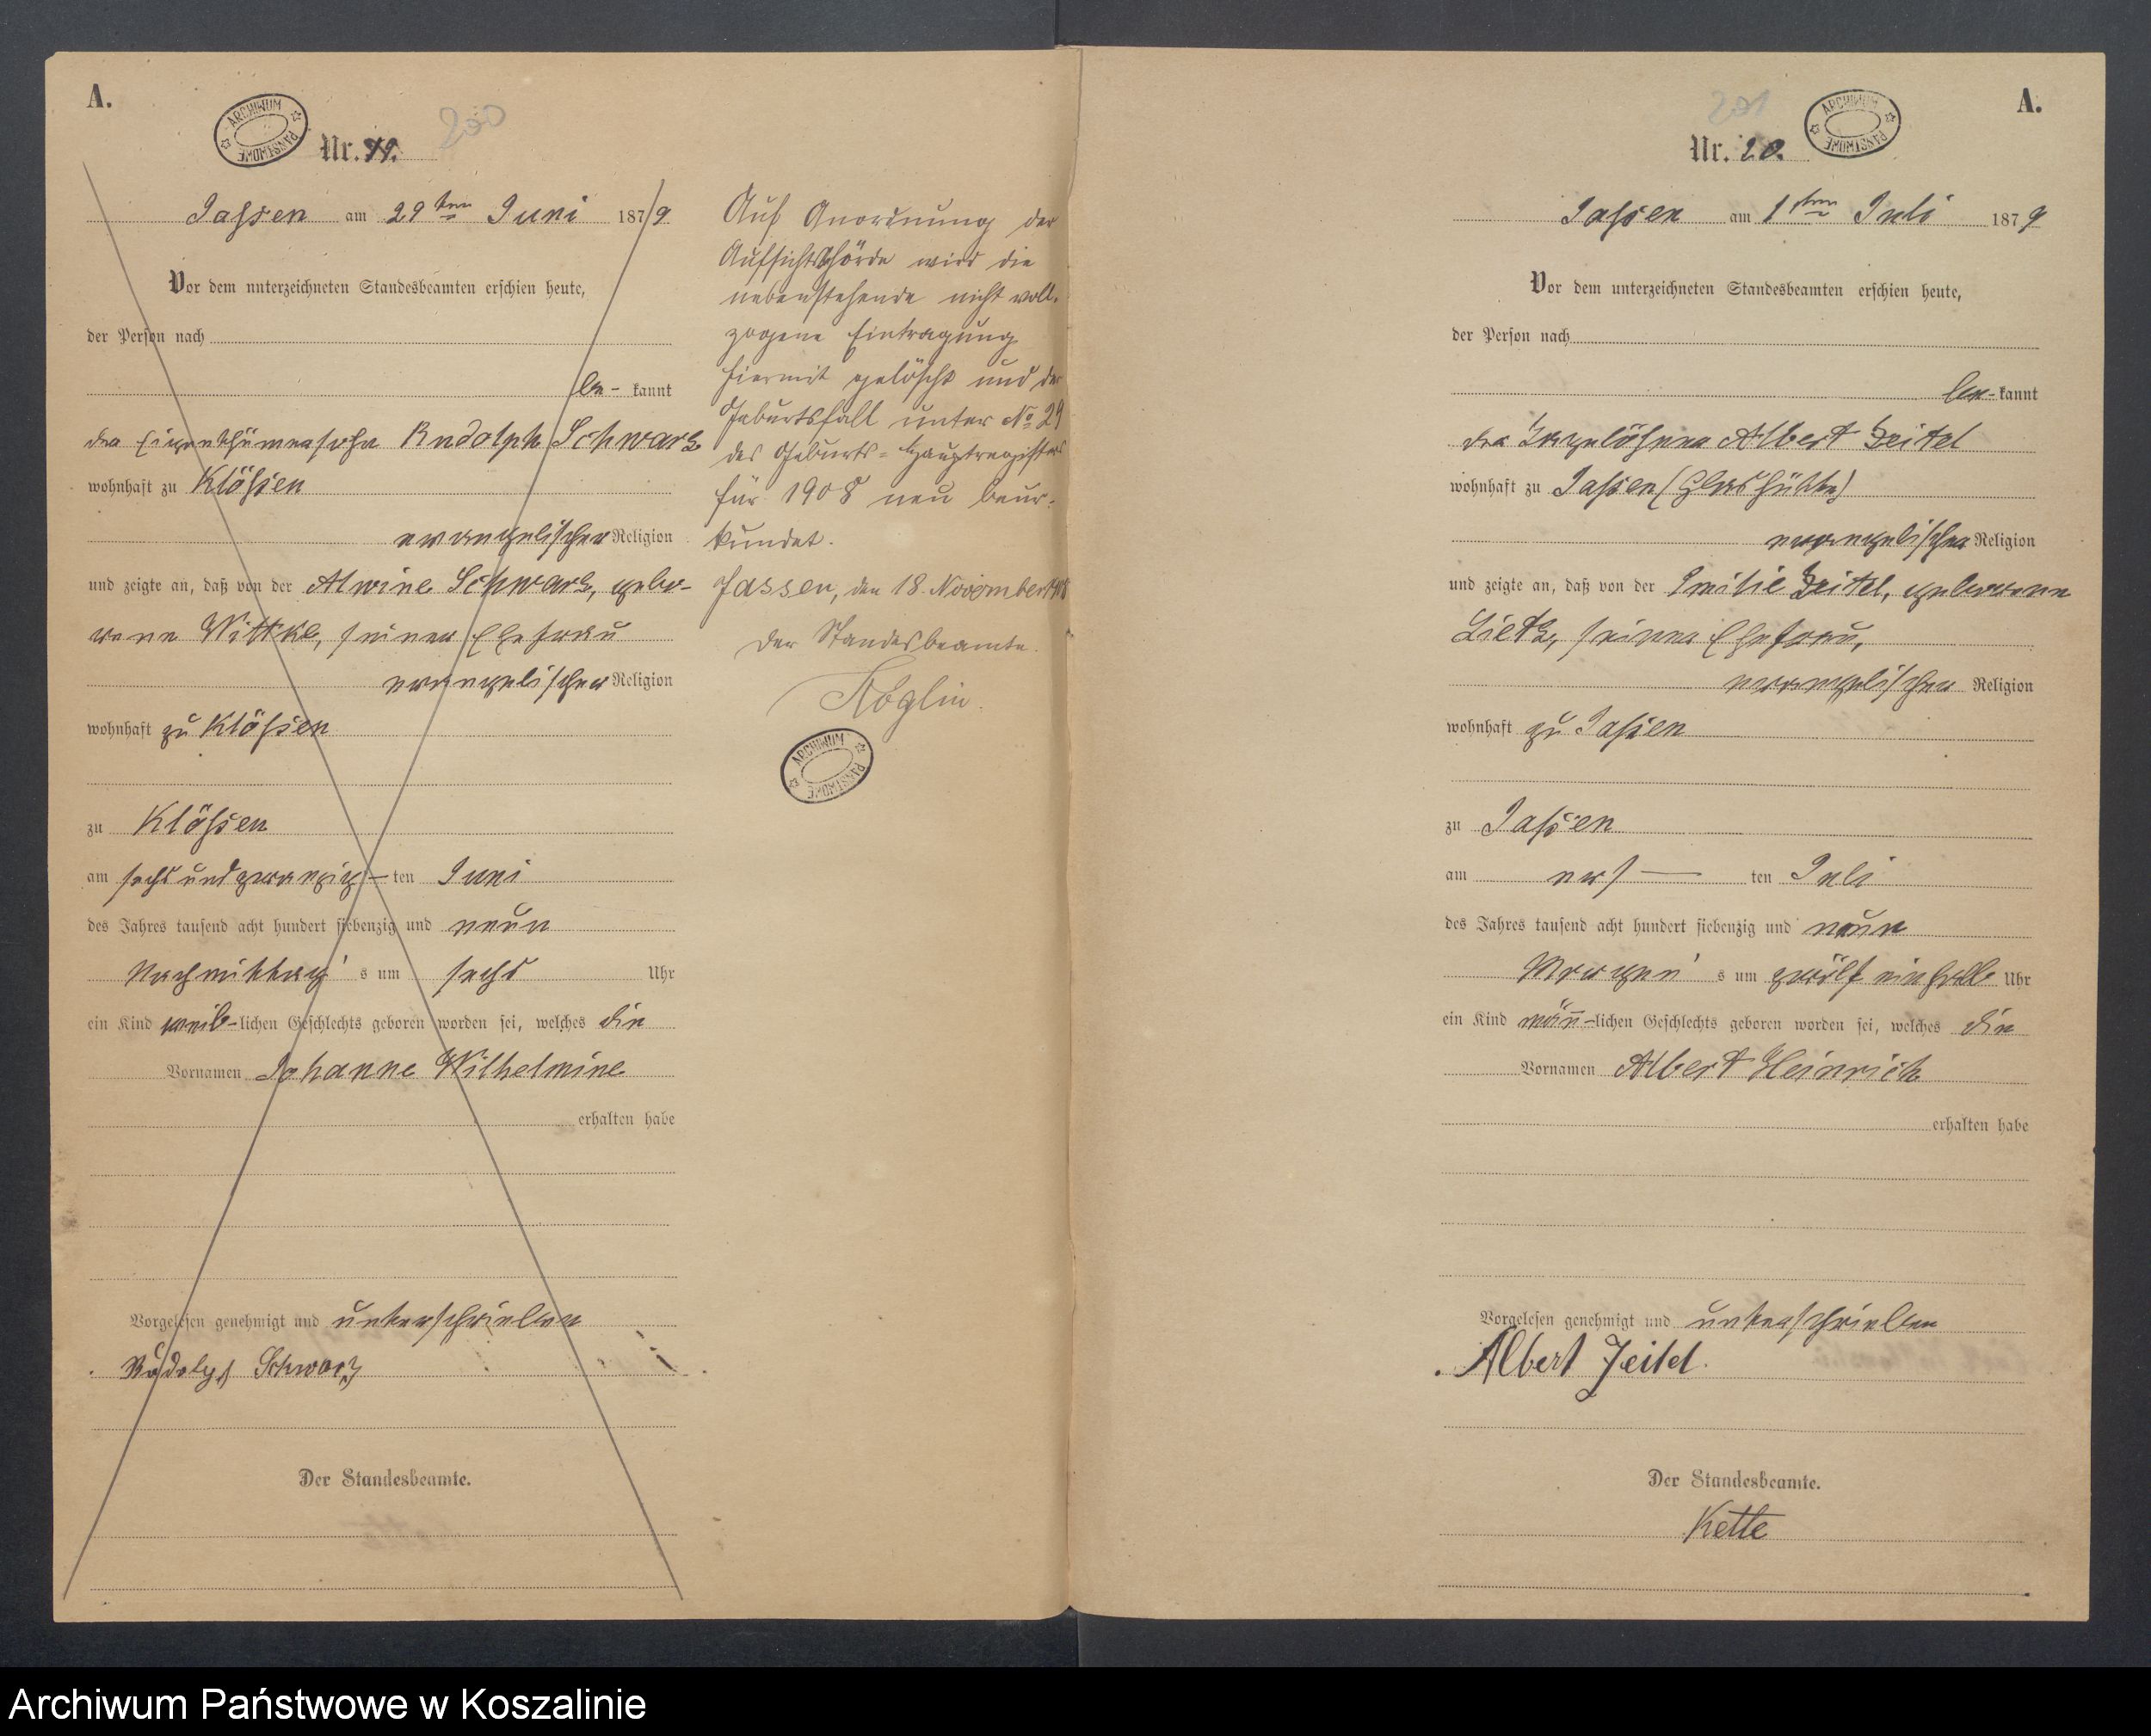 A.
ARCHIWUM PAŃSTWOWE
200
Nr. 19.
Jassen am 29ten Juni 1879
Vor dem unterzeichneten Standesbeamten erschien heute,
der Person nach
be- kannt
der Eigenthümersohn Rudolph Schwarz
wohnhaft zu Klössen
evangelischer Religion
und zeigte an, daß von der Alwine Schwarz, gebo-
rene Wittke, seiner Ehefrau
evangelischer Religion
wohnhaft zu Klössen
zu Klössen
am sechsundzwanzig- ten Juni
des Jahres tausend acht hundert siebenzig und neun
Nachmittag's um sechs Uhr
ein Kind weib-lichen Geschlechts geboren worden sei, welches die
Vornamen Johanne Wilhelmine
erhalten habe
Vorgelesen genehmigt und unterschrieben
Rudolph Schwarz
Der Standesbeamte.
Auf Anordnung der
Aufsichtsbehörde wird die
nebenstehende nicht voll-
zogene Eintragung
hiermit gelöscht und der
Geburtsfall unter No 29
des Geburts=Hauptregisters
für 1908 neu beur-
kundet.
Jassen, den 18. November 1908
Der Standesbeamte.
ARCHIWUM PAŃSTWOWE
A.
201
ARCHIWUM PAŃSTWOWE
Nr. 20.
Jassen am 1ten Juli 1879
Vor dem unterzeichneten Standesbeamten erschien heute,
der Person nach
be- kannt
der Albert Zeitel
wohnhaft zu Jassen (Glashütte)
evangelischer Religion
und zeigte an, daß von der Emilie Zeitel, geborene
Lietz, seiner Ehefrau,
evangelischer Religion
wohnhaft zu Jassen
zu Jassen
am erst- ten Juli
des Jahres tausend acht hundert siebenzig und neun
Morgen's um zwölf einhalb Uhr
ein Kind männ-lichen Geschlechts geboren worden sei, welches die
Vornamen Albert Heinrich
erhalten habe
Vorgelesen genehmigt und unterschrieben
Albert Zeitel.
Der Standesbeamte.
Kette
Archiwum Państwowe w Koszalinie